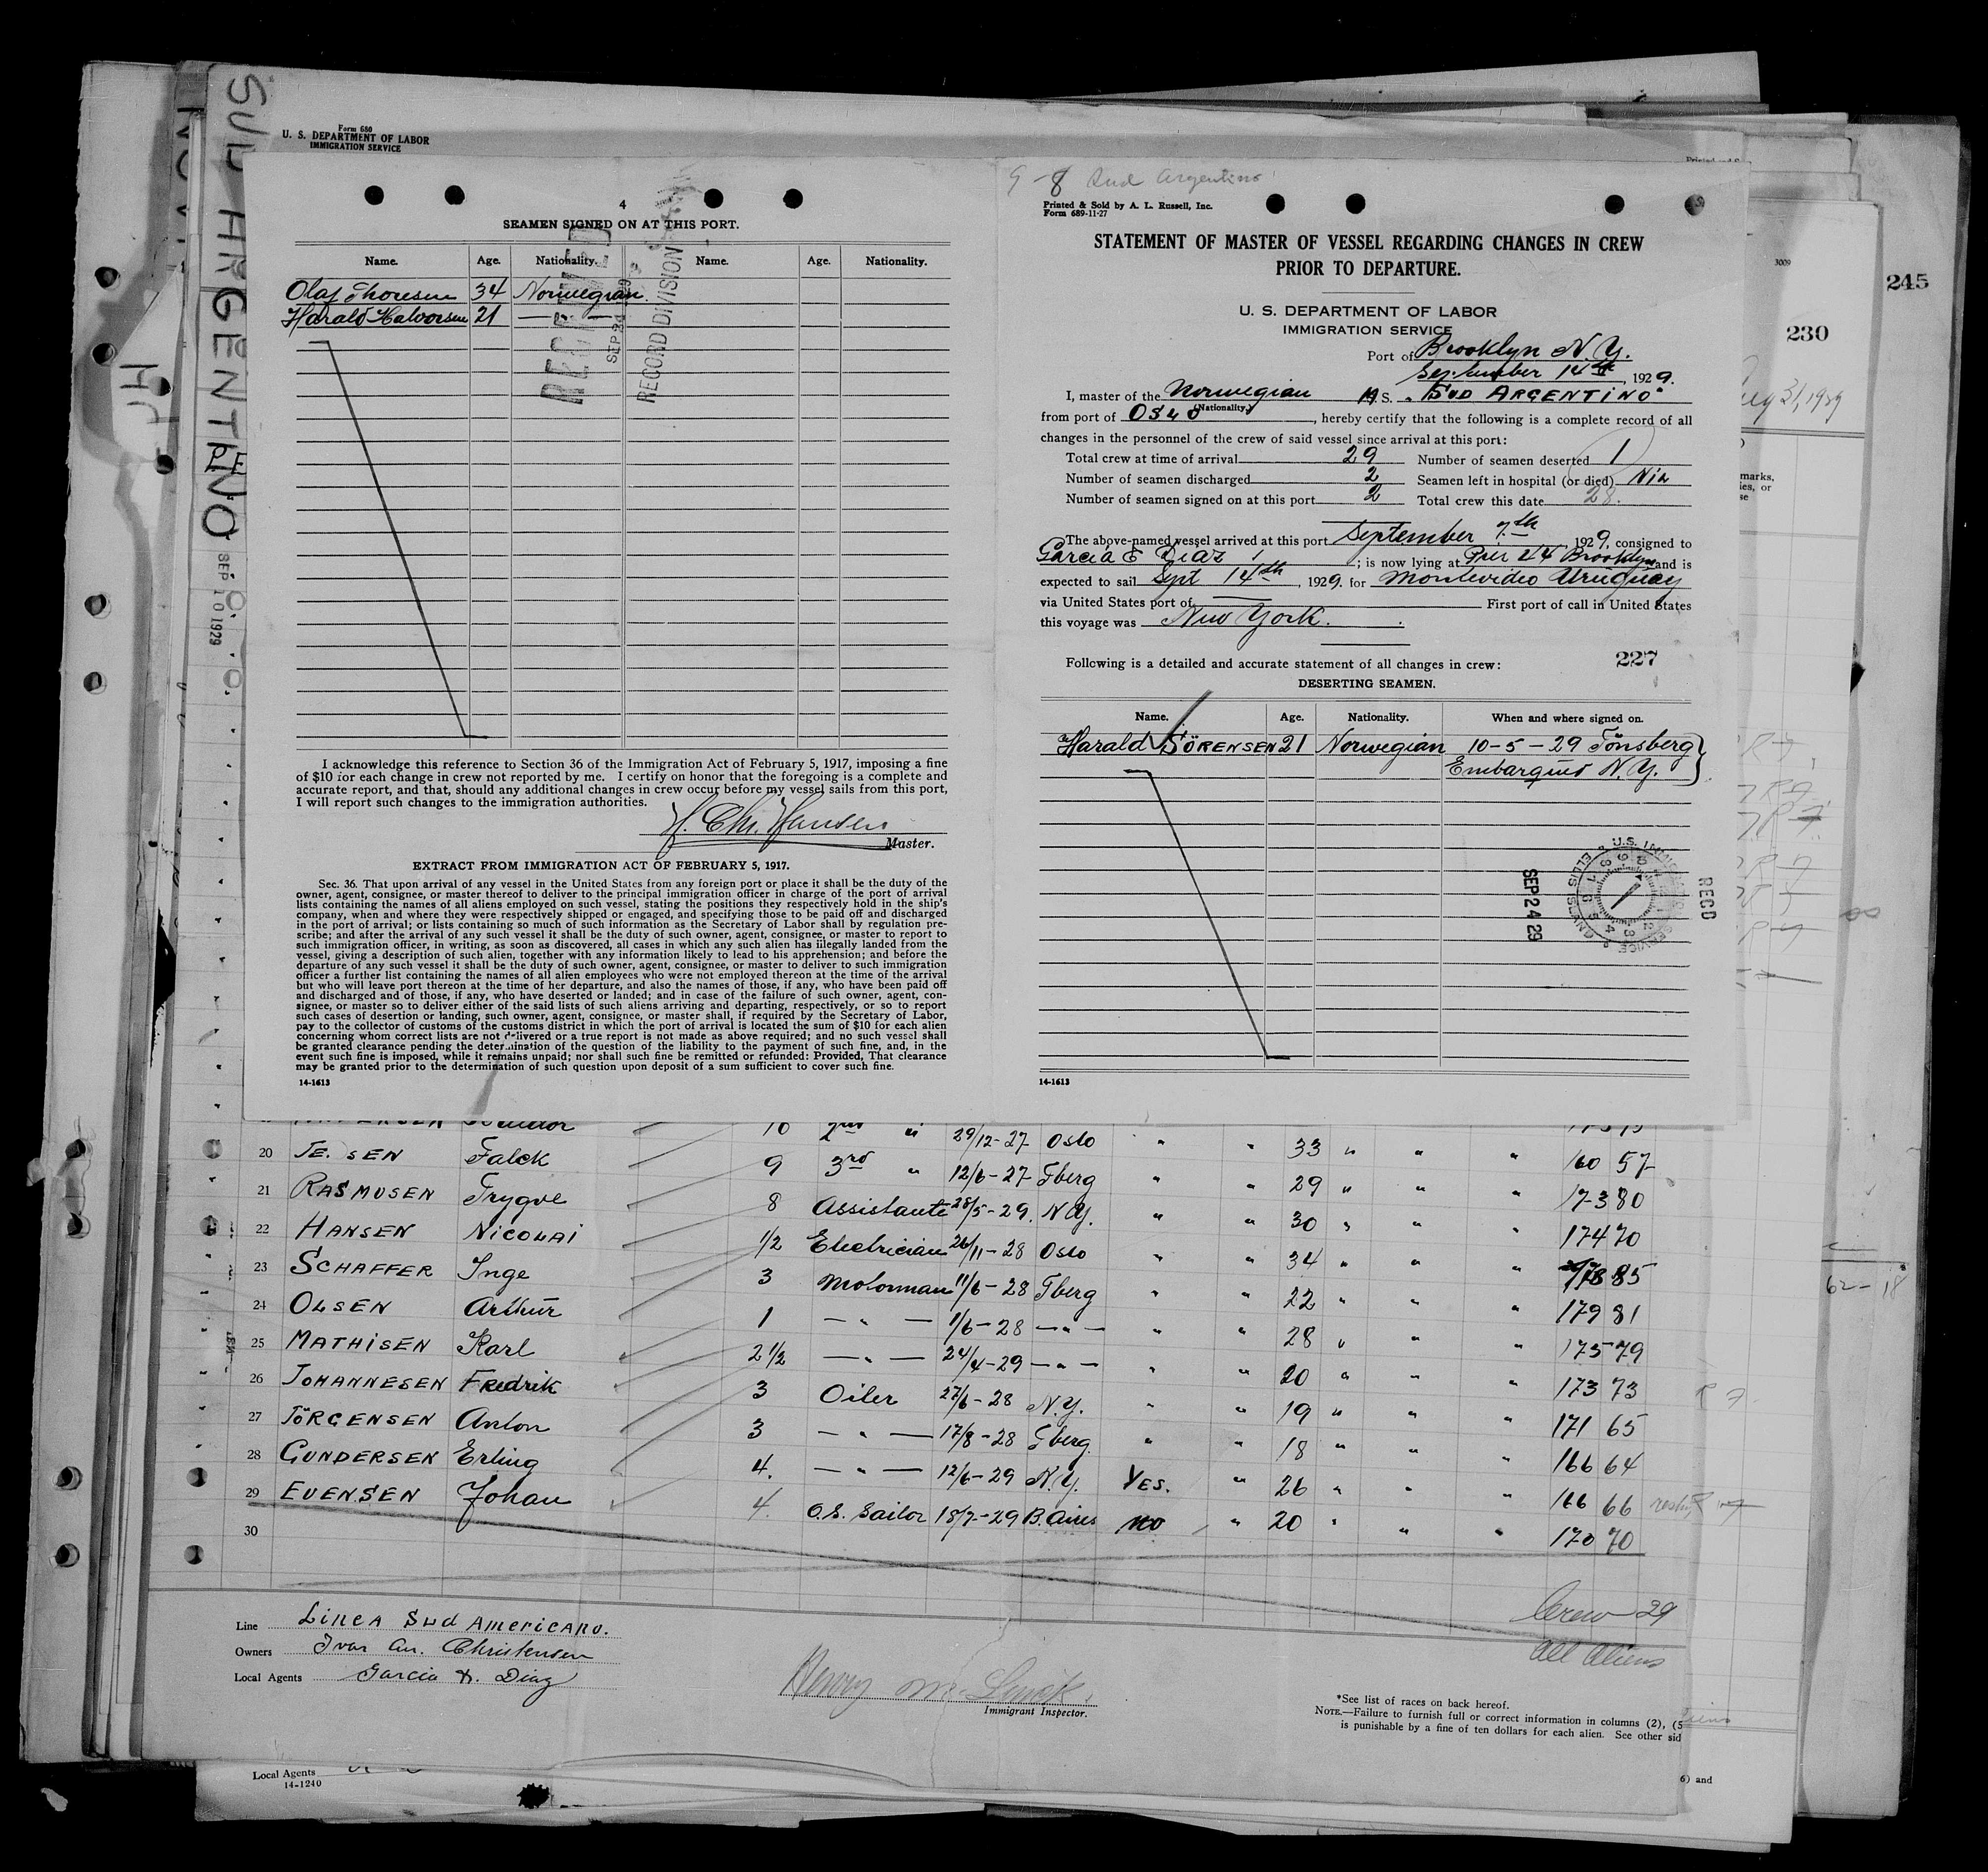 SUD ARGENTINO
SEP 10 1929
Form 680
U. S. DEPARTMENT OF LABOR
IMMIGRATION SERVICE
4
SEAMEN SIGNED ON AT THIS PORT.
Name. Age. Nationality. Name. Age. Nationality.
Olaf Thoresen 34 Norwegian
Harald Halvorsen 21 — " —
RECEIVED
SEP 24 1929
RECORD DIVISION
I acknowledge this reference to Section 36 of the Immigration Act of February 5, 1917, imposing a fine
of $10 for each change in crew not reported by me. I certify on honor that the foregoing is a complete and
accurate report, and that, should any additional changes in crew occur before my vessel sails from this port,
I will report such changes to the immigration authorities.
H. Chr. Hansen
Master.
EXTRACT FROM IMMIGRATION ACT OF FEBRUARY 5, 1917.
Sec. 36. That upon arrival of any vessel in the United States from any foreign port or place it shall be the duty of the
owner, agent, consignee, or master thereof to deliver to the principal immigration officer in charge of the port of arrival
lists containing the names of all aliens employed on such vessel, stating the positions they respectively hold in the ship's
company, when and where they were respectively shipped or engaged, and specifying those to be paid off and discharged
in the port of arrival; or lists containing so much of such information as the Secretary of Labor shall by regulation pre-
scribe; and after the arrival of any such vessel it shall be the duty of such owner, agent, consignee, or master to report to
such immigration officer, in writing, as soon as discovered, all cases in which any such alien has illegally landed from the
vessel, giving a description of such alien, together with any information likely to lead to his apprehension; and before the
departure of any such vessel it shall be the duty of such owner, agent, consignee, or master to deliver to such immigration
officer a further list containing the names of all alien employees who were not employed thereon at the time of the arrival
but who will leave port thereon at the time of her departure, and also the names of those, if any, who have been paid off
and discharged and of those, if any, who have deserted or landed; and in case of the failure of such owner, agent, con-
signee, or master so to deliver either of the said lists of such aliens arriving and departing, respectively, or so to report
such cases of desertion or landing, such owner, agent, consignee, or master shall, if required by the Secretary of Labor,
pay to the collector of customs of the customs district in which the port of arrival is located the sum of $10 for each alien
concerning whom correct lists are not delivered or a true report is not made as above required; and no such vessel shall
be granted clearance pending the determination of the question of the liability to the payment of such fine, and, in the
event such fine is imposed, while it remains unpaid; nor shall such fine be remitted or refunded: Provided, That clearance
may be granted prior to the determination of such question upon deposit of a sum sufficient to cover such fine.
14-1613
9-8 Sud Argentino
Printed & Sold by A. L. Russell, Inc.
Form 689-11-27
STATEMENT OF MASTER OF VESSEL REGARDING CHANGES IN CREW
PRIOR TO DEPARTURE.
U. S. DEPARTMENT OF LABOR
IMMIGRATION SERVICE
Port of Brooklyn N.Y.
September 14th, 1929.
I, master of the Norwegian M.S. "SUD ARGENTINO"
(Nationality)
from port of OSLO, hereby certify that the following is a complete record of all
changes in the personnel of the crew of said vessel since arrival at this port:
Total crew at time of arrival 29 Number of seamen deserted 1
Number of seamen discharged 2 Seamen left in hospital (or died) Nil
Number of seamen signed on at this port 2 Total crew this date 28.
The above-named vessel arrived at this port September 7th, 1929, consigned to
Garcia & Diaz; is now lying at Pier 24 Brooklyn and is
expected to sail Sept 14th, 1929. for Montevideo Uruguay
via United States port of — First port of call in United States
this voyage was New York.
Following is a detailed and accurate statement of all changes in crew:
227
DESERTING SEAMEN.
Name. Age. Nationality. When and where signed on.
Harald SÖRENSEN 21 Norwegian 10-5-29 Tönsberg
Embarqued N.Y.
U.S. IMMIGRATION SERVICE ELLIS ISLAND
SEP 24 29
RECD
14-1613
3009
230
245
marks,
ies, or
se
10 2nd " 29/12-27 Oslo
20 JE. SEN Falck 9 3rd " 12/6-27 Tberg " " 33 " " " 160 57
21 RASMUSEN Trygve 8 Assistante 28/5-29. N.Y. " " 29 " " " 173 80
22 HANSEN NICOLAI 1/2 Electrician 26/11-28 Oslo " " 30 " " " 174 70
23 SCHAFFER Inge 3 Motorman 11/6-28 Tberg " " 34 " " " 178 85
24 OLSEN Arthur 1 — " — 1/6-28 — " — " " 22 " " " 179 81
25 MATHISEN Karl 2 1/2 — " — 24/4-29 — " — " " 28 " " " 175 79
26 JOHANNESEN Fredrik 3 Oiler 27/6-28 N.Y. " " 20 " " " 173 73
27 JÖRGENSEN Anton 3 — " — 17/8-28 Tberg. " " 19 " " " 171 65
28 GUNDERSEN Erling 4. — " — 12/6-29 N.Y. YES. " 18 " " " 166 64
29 EVENSEN Johan 4. O.S. Sailor 18/7-29 B.Aires no " 26 " " " 166 66
30 " 20 " " " 170 70
Crew 29
All Aliens
Line LINEA SUD AMERICANO.
Owners Ivar An. Christensen
Local Agents Garcia & Diaz
Immigrant Inspector.
*See list of races on back hereof.
NOTE.—Failure to furnish full or correct information in columns (2), (5
is punishable by a fine of ten dollars for each alien. See other sid
62-18
Local Agents
14-1240
6) and